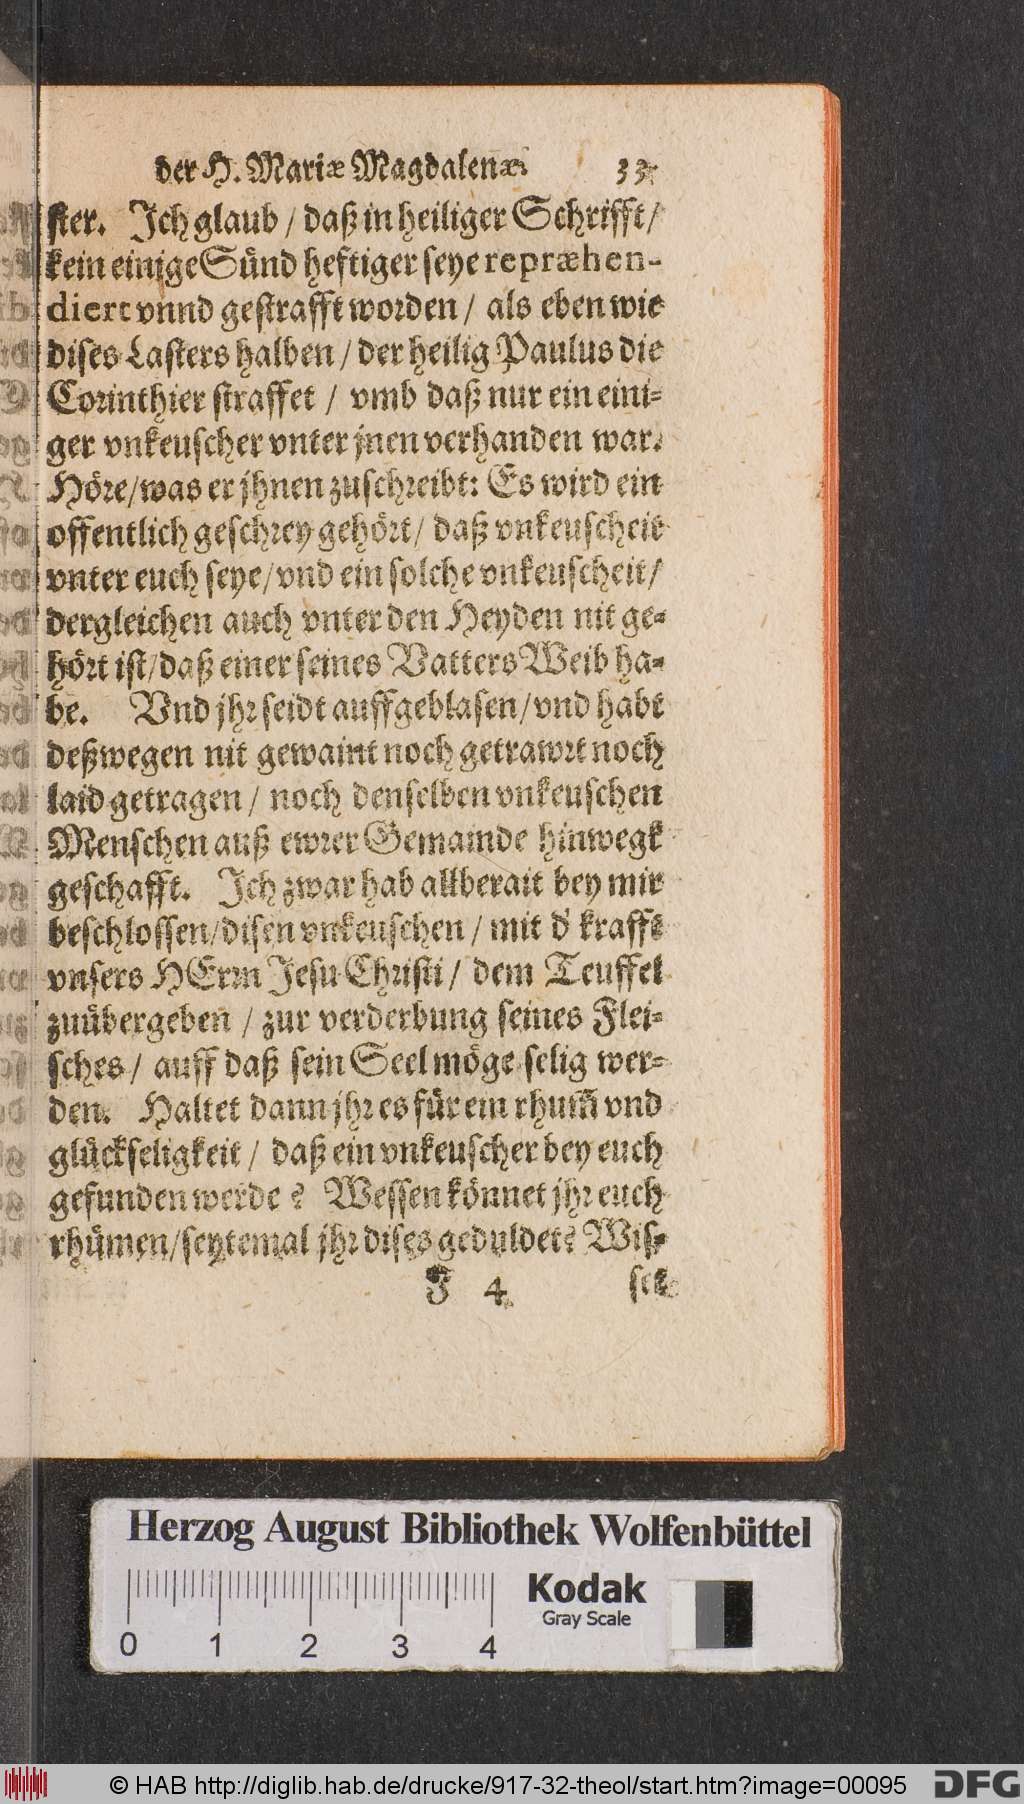 der H. Mariæ Magdalenæ. 33.
ster. Jch glaub / daß in heiliger Schrifft /
kein einige Sünd heftiger seye repræhen-
diert vnnd gestrafft worden / als eben wie
dises Lasters halben / der heilig Paulus die
Corinthier straffet / vmb daß nur ein eini-
ger vnkeuscher vnter jnen verhanden war.
Höre/was er jhnen zuschreibt: Es wird ein
offentlich geschrey gehört/ daß vnkeuscheit
vnter euch seye/vnd ein solche vnkeuscheit/
dergleichen auch vnter den Heyden nit ge-
hört ist/daß einer seines Vatters Weib ha-
be. Vnd jhr seidt auffgeblasen/vnd habt
deßwegen nit gewaint noch getrawrt noch
laid getragen / noch denselben vnkeuschen
Menschen auß ewrer Gemainde hinwegk
geschafft. Jch zwar hab allberait bey mir
beschlossen/disen vnkeuschen / mit d' krafft
vnsers HErrn Jesu Christi / dem Teuffel
zuübergeben / zur verderbung seines Flei-
sches / auff daß sein Seel möge selig wer-
den. Haltet dann jhr es für ein rhum̃ vnd
glückseligkeit / daß ein vnkeuscher bey euch
gefunden werde ? Wessen könnet jhr euch
rhümen/seytemal jhr dises geduldet? Wis-
F 4 set
Herzog August Bibliothek Wolfenbüttel
Kodak
Gray Scale
0 1 2 3 4
© HAB http://diglib.hab.de/drucke/917-32-theol/start.htm?image=00095
DFG